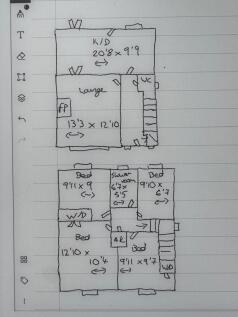 K/D
20'8 x 9'9
WC
Lounge
FP
13'3 x 12'10
Bed
9'11 x 9
Shower
room
6'7 x
5'5
Bed
9'10 x
6'7
W/D
Bed
12'10 x
10'4
AR
Bed
9'11 x 9'7
WD